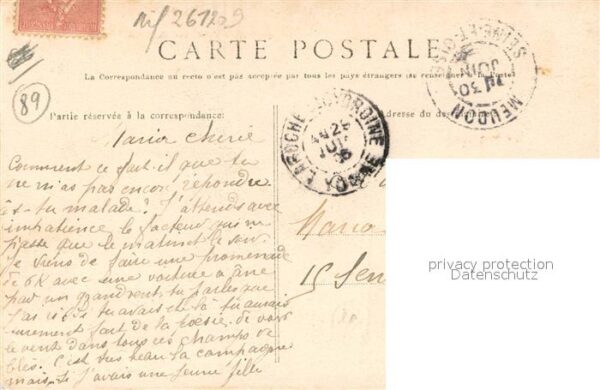 Rif 261209
CARTE POSTALE
La Correspondance au recto n'est pas acceptée par tous les pays étrangers (se renseigner à la Poste)
89
Partie réservée à la correspondance:
Adresse du des
SEINE-ET-OISE
30 JUIN
MEUDON
LAROCHE
YONNE
Maria cherie
Comment ce fait-il que tu
ne m'as pas encore répondre
Es-tu malade? J'attends avec
impatience le facteur qui ne
passe que le matin et le soir.
Je viens de faire une promenade
de 6K avec une voiture a âne
par un grand vent tu parles que
j'ai tu avais été là tu aurais
surement fait de la poésie de voir
le vent dans tous ces champs de
blés. C'est très beau la campagne
mais si j'avais une jeune fille
Maria
15
privacy protection
Datenschutz